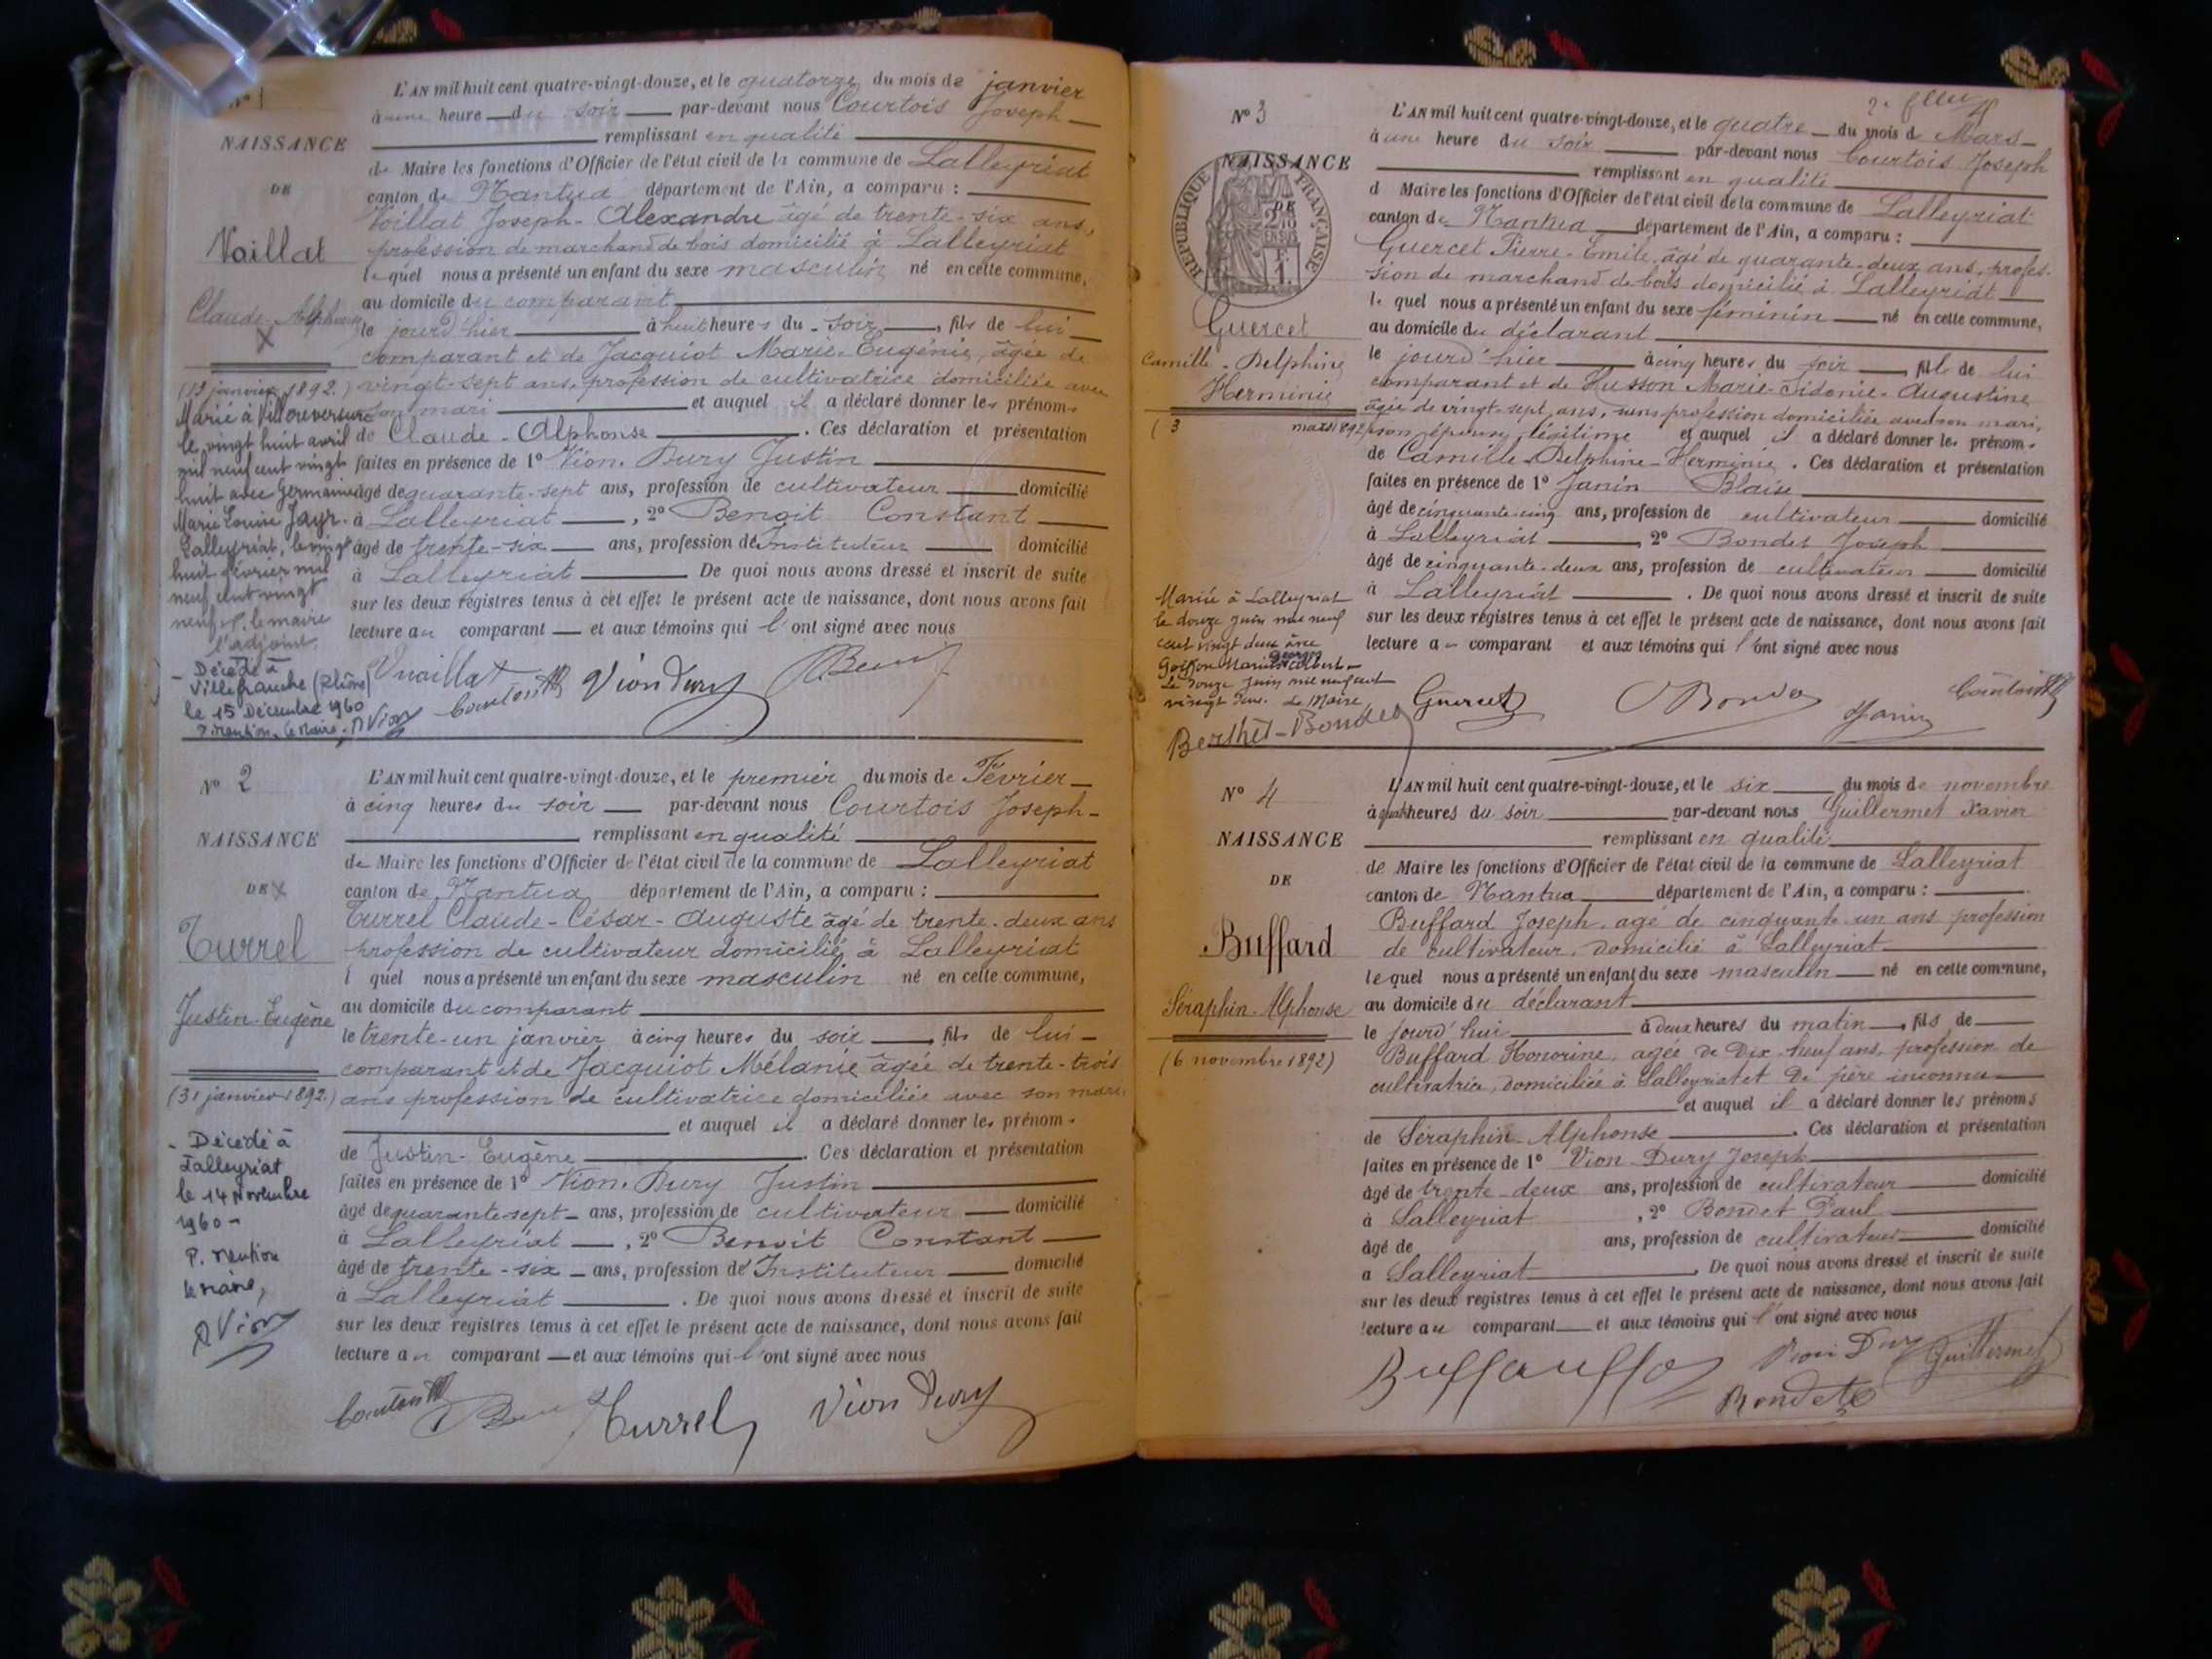 NAISSANCE
DE
Voillat
Claude-Alphonse
(13 janvier 1892)
Marié à Villereversure
le vingt huit avril
mil neuf cent vingt
huit avec Germaine
Marie Louise Jayr.
Lalleyriat, le vingt
huit février mil
neuf cent vingt
neuf P. le maire
l'adjoint.
- Décédé à
Villefranche (Rhône)
le 15 Décembre 1960
P. mention, le Maire, A Vion
L'AN mil huit cent quatre-vingt-douze, et le quatorze du mois de janvier
à une heure du soir par-devant nous Courtois Joseph
remplissant en qualité
de Maire les fonctions d'Officier de l'état civil de la commune de Lalleyriat
canton de Nantua département de l'Ain, a comparu :
Voillat Joseph-Alexandre âgé de trente-six ans,
profession de marchand de bois domicilié à Lalleyriat
lequel nous a présenté un enfant du sexe masculin né en cette commune,
au domicile du comparant
le jourd'hier à huit heures du soir, fils de lui
comparant et de Jacquiot Marie-Eugénie, âgée de
vingt-sept ans, profession de cultivatrice domiciliée avec
son mari et auquel il a déclaré donner les prénoms
de Claude-Alphonse. Ces déclaration et présentation
faites en présence de 1° Vion-Dury Justin
âgé de quarante-sept ans, profession de cultivateur domicilié
à Lalleyriat, 2° Benoit Constant
âgé de trente-six ans, profession d'Instituteur domicilié
à Lalleyriat De quoi nous avons dressé et inscrit de suite
sur les deux registres tenus à cet effet le présent acte de naissance, dont nous avons fait
lecture au comparant et aux témoins qui l'ont signé avec nous
Vuaillat Courtois Vion Dury
N° 2
NAISSANCE
DE
Turrel
Justin-Eugène
(31 janvier 1892.)
- Décédé à
Lalleyriat
le 14 Novembre
1960 -
P. mention
le maire,
A Vion
L'AN mil huit cent quatre-vingt-douze, et le premier du mois de Février
à cinq heures du soir par-devant nous Courtois Joseph-
remplissant en qualité
de Maire les fonctions d'Officier de l'état civil de la commune de Lalleyriat
canton de Nantua département de l'Ain, a comparu :
Turrel Claude-César-Auguste âgé de trente-deux ans
profession de cultivateur domicilié à Lalleyriat
l quel nous a présenté un enfant du sexe masculin né en cette commune,
au domicile du comparant
le trente-un janvier à cinq heures du soir, fils de lui
comparant et de Jacquiot Mélanie âgée de trente-trois
ans profession de cultivatrice domiciliée avec son mari
et auquel il a déclaré donner les prénoms
de Justin-Eugène. Ces déclaration et présentation
faites en présence de 1° Vion-Dury Justin
âgé de quarante-sept ans, profession de cultivateur domicilié
à Lalleyriat, 2° Benoit Constant
âgé de trente-six ans, profession d'Instituteur domicilié
à Lalleyriat. De quoi nous avons dressé et inscrit de suite
sur les deux registres tenus à cet effet le présent acte de naissance, dont nous avons fait
lecture au comparant et aux témoins qui l'ont signé avec nous
Courtois Turrel Vion Dury
N° 3
NAISSANCE
DE
RÉPUBLIQUE FRANÇAISE
Guercet
Camille-Delphine
Herminie
(3 mars 1892)
Mariée à Lalleyriat
le douze juin mil neuf
cent vingt deux avec
Marius Albert
Le douze juin mil neuf cent
vingt deux. Le Maire,
Berthet-Bondet
L'AN mil huit cent quatre-vingt-douze, et le quatre du mois de Mars
à une heure du soir par-devant nous Courtois Joseph
remplissant en qualité
d Maire les fonctions d'Officier de l'état civil de la commune de Lalleyriat
canton de Nantua département de l'Ain, a comparu :
Guercet Pierre-Emile, âgé de quarante-deux ans, profes-
sion de marchand de bois domicilié à Lalleyriat
lequel nous a présenté un enfant du sexe féminin né en cette commune,
au domicile du déclarant
le jourd'hier à cinq heures du soir, fille de lui
comparant et de Husson Marie-Sidonie-Augustine
âgée de vingt-sept ans, sans profession domiciliée avec son mari,
son épouse légitime et auquel il a déclaré donner les prénoms
de Camille-Delphine-Herminie. Ces déclaration et présentation
faites en présence de 1° Janin Blaise
âgé de cinquante-cinq ans, profession de cultivateur domicilié
à Lalleyriat, 2° Bondet Joseph
âgé de cinquante-deux ans, profession de cultivateur domicilié
à Lalleyriat. De quoi nous avons dressé et inscrit de suite
sur les deux registres tenus à cet effet le présent acte de naissance, dont nous avons fait
lecture au comparant et aux témoins qui l'ont signé avec nous
Guercet Bondet Janin Courtois
N° 4
NAISSANCE
DE
Buffard
Séraphin-Alphonse
(6 novembre 1892)
L'AN mil huit cent quatre-vingt-douze, et le six du mois de novembre
à quatre heures du soir par-devant nous Guillermet Xavier
remplissant en qualité
de Maire les fonctions d'Officier de l'état civil de la commune de Lalleyriat
canton de Nantua département de l'Ain, a comparu :
Buffard Joseph, agé de cinquante-un ans profession
de cultivateur, domicilié à Lalleyriat
lequel nous a présenté un enfant du sexe masculin né en cette commune,
au domicile du déclarant
le jourd'hui à deux heures du matin, fils de
Buffard Honorine, agée de dix-neuf ans, profession de
cultivatrice, domiciliée à Lalleyriat et de père inconnu
et auquel il a déclaré donner les prénoms
de Séraphin-Alphonse. Ces déclaration et présentation
faites en présence de 1° Vion-Dury Joseph
âgé de trente-deux ans, profession de cultivateur domicilié
à Lalleyriat, 2° Bondet Paul
âgé de ans, profession de cultivateur domicilié
a Lalleyriat. De quoi nous avons dressé et inscrit de suite
sur les deux registres tenus à cet effet le présent acte de naissance, dont nous avons fait
lecture au comparant et aux témoins qui l'ont signé avec nous
Vion Dury Guillermet
Bondet